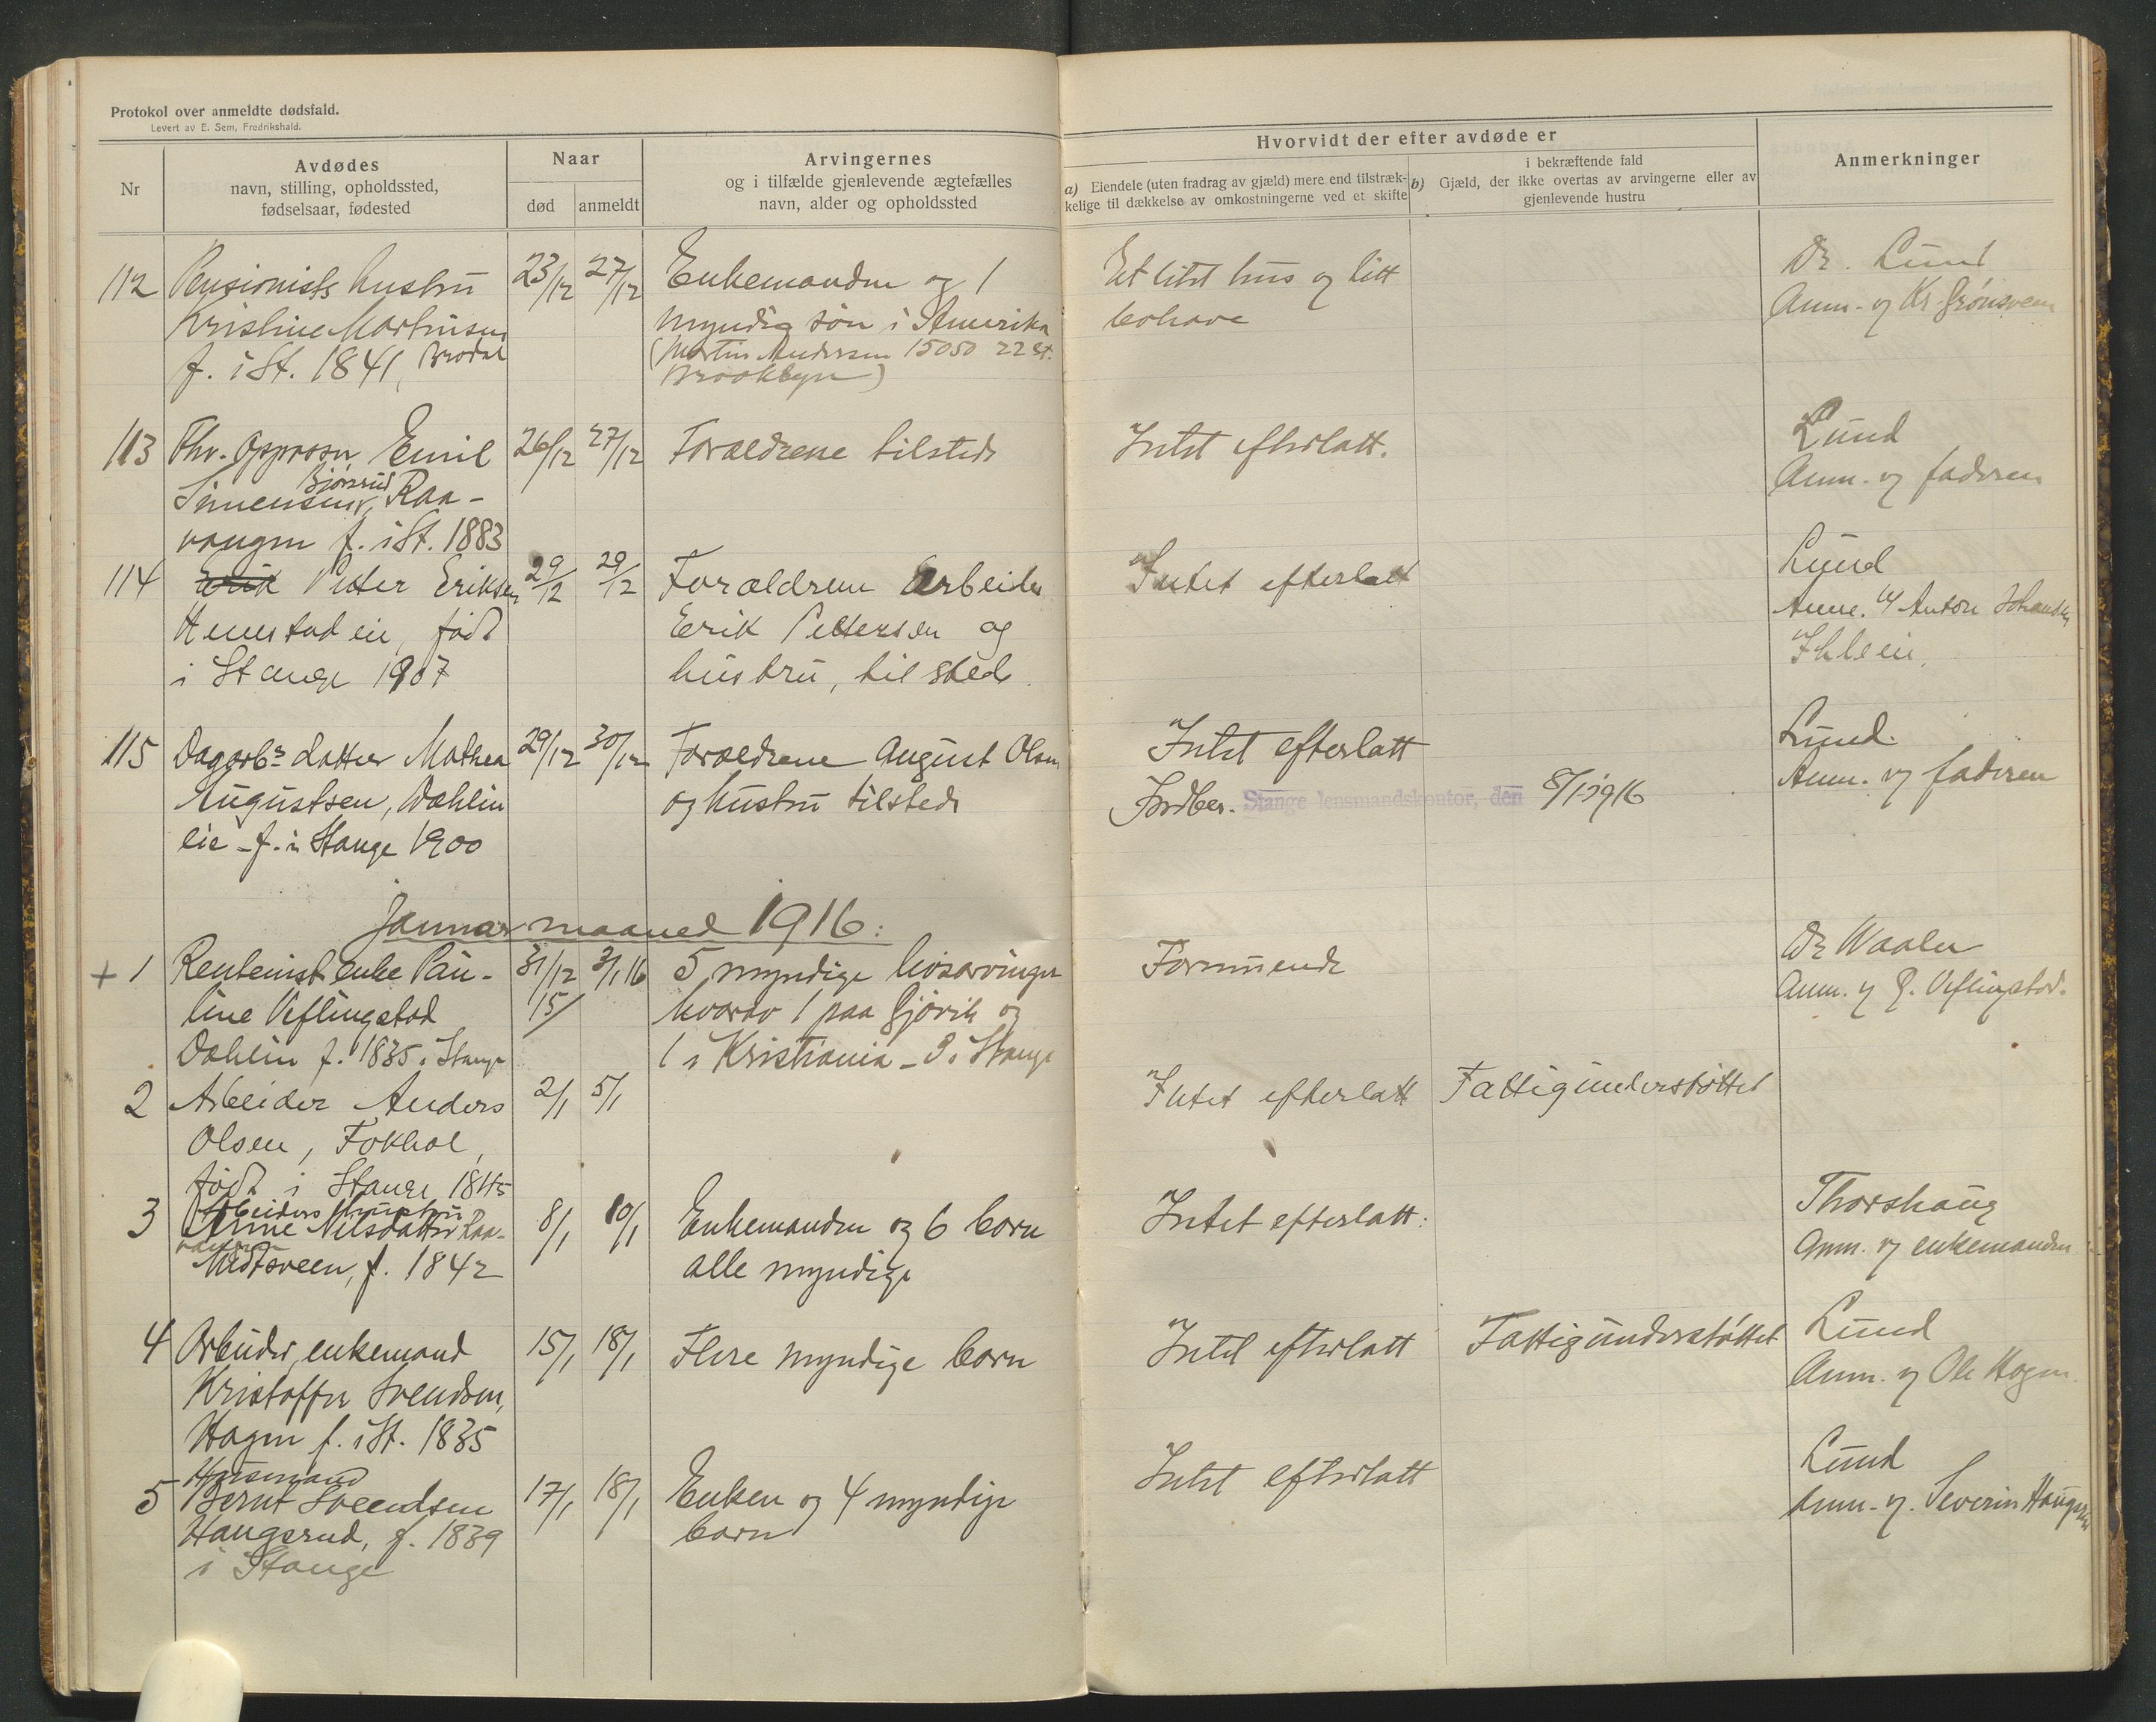 Protokol over anmeldte dødsfald.
Levert av E. Sem, Fredrikshald.
Nr
Avdødes
navn, stilling, opholdssted,
fødselsaar, fødested
Naar
død
anmeldt
Arvingernes
og i tilfælde gjenlevende ægtefælles
navn, alder og opholdssted
Hvorvidt der efter avdøde er
a) Eiendele (uten fradrag av gjæld) mere end tilstræk-
kelige til dækkelse av omkostningerne ved et skifte
i bekræftende fald
b) Gjæld, der ikke overtas av arvingerne eller av
gjenlevende hustru
Anmerkninger
112
Pensionists hustru
Kristine Martinsen
f. i St. 1841, Brodal
23/12
27/12
Enkemanden og 1
myndig søn i Amerika
(Martin Andersen 15050 22 St.
Brooklyn)
Et litet hus og litt
bohave
Dr. Lund
Anm. og Kr. Grønsveen
113
Fhv. Emil
Simensen Bjørsrud, Raa-
vangen f. i St. 1883
26/12
27/12
Forældrene tilsteds
Intet efterlatt.
Lund
Anm. og faderen
114
Erik Petter Eriksen
Hemstad eie, født
i Stange 1907
29/12
29/12
Forældrene Arbeider
Erik Pettersen og
hustru, tilsteds.
Intet efterlatt
Lund
Anm. og Anton Johansen
Ihleeie.
115
Dagarbs datter Mathea
Augustsen, Dahlin
eie - f. i Stange 1900
29/12
30/12
Forældrene August Olsen
og hustru tilsteds
Intet efterlatt
Indber. Stange lensmandskontor, den 8/1 1916
Lund.
Anm. og faderen
Januar maaned 1916:
+ 1
Rentenist enke Pau-
line Veflingstad
Dahlin f. 1835 i Stange
31/12
15/
3/1 16
5 myndige livsarvinger
hvorav 1 paa Gjøvik og
1 i Kristiania - 3 i Stange
Formuende
Dr Waaler
Anm. og Veflingstad.
2
Arbeider Anders
Olsen, Fokhol,
født i Stange 1845
2/1
5/1
Intet efterlatt
Fattigunderstøttet
3
Arbeiders hustru
Anne Nilsdatter Raa-
vangen
Midtsveen, f. 1842
8/1
10/1
Enkemanden og 6 born
alle myndige
Intet efterlatt.
Thorshaug
Anm. og enkemanden
4
Arbeider, enkemand
Kristoffer Svendsen,
Hagen f. i St. 1835
15/1
18/1
Flere myndige born
Intet efterlatt
Fattigunderstøttet
Lund
Anm. og Ole Hagen.
5
Husmand
Bernt Svendsen
Haugsrud, f. 1839
i Stange
17/1
18/1
Enken og 4 myndige
born
Intet efterlatt
Lund
Anm. og. Severin Haugsrud